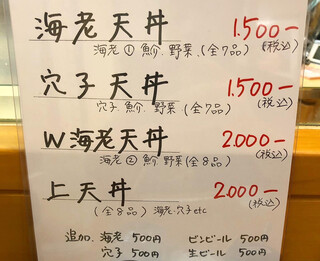 海老天丼 1.500-
海老① 魚介.野菜.(全7品) (税込)
穴子天丼 1.500-
穴子.魚介.野菜(全7品) (税込)
W海老天丼 2.000-
海老② 魚介.野菜(全8品) (税込)
上天丼 2.000-
(全8品) 海老.穴子etc (税込)
追加.海老 500円 ビンビール 500円
穴子 500円 生ビール 500円